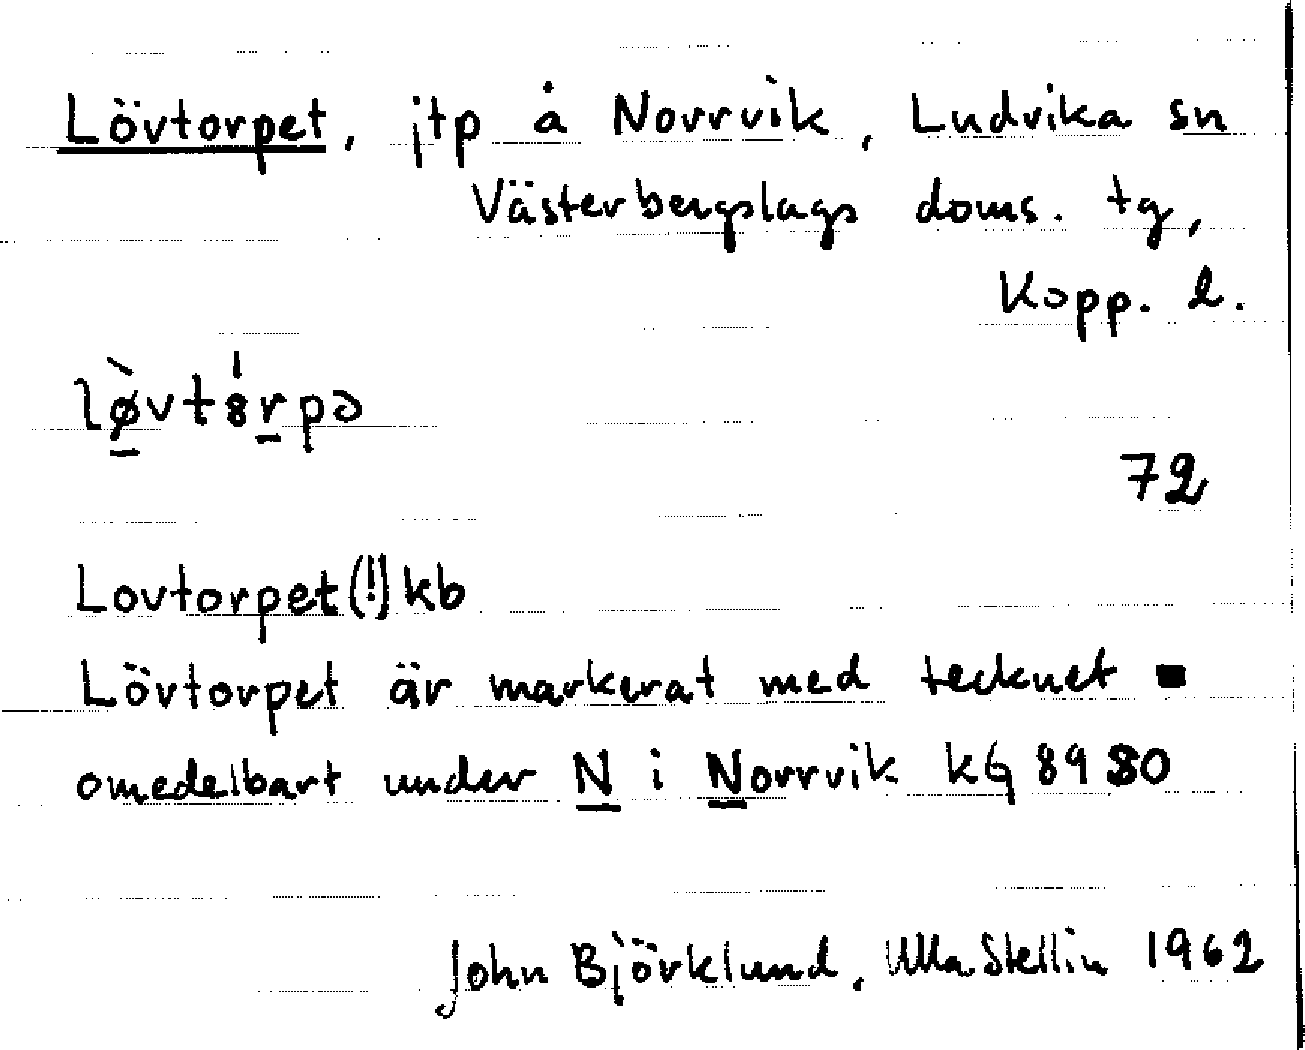 Lövtorpet, jtp å Norrvik, Ludvika sn
Västerbergslags doms. tg,
Kopp. l.
lø̀vtȣ́rpə
72
Lovtorpet(!) kb
Lövtorpet är markerat med tecknet ▪
omedelbart under N i Norrvik kG 8980
John Björklund, Ulla Stellin 1962